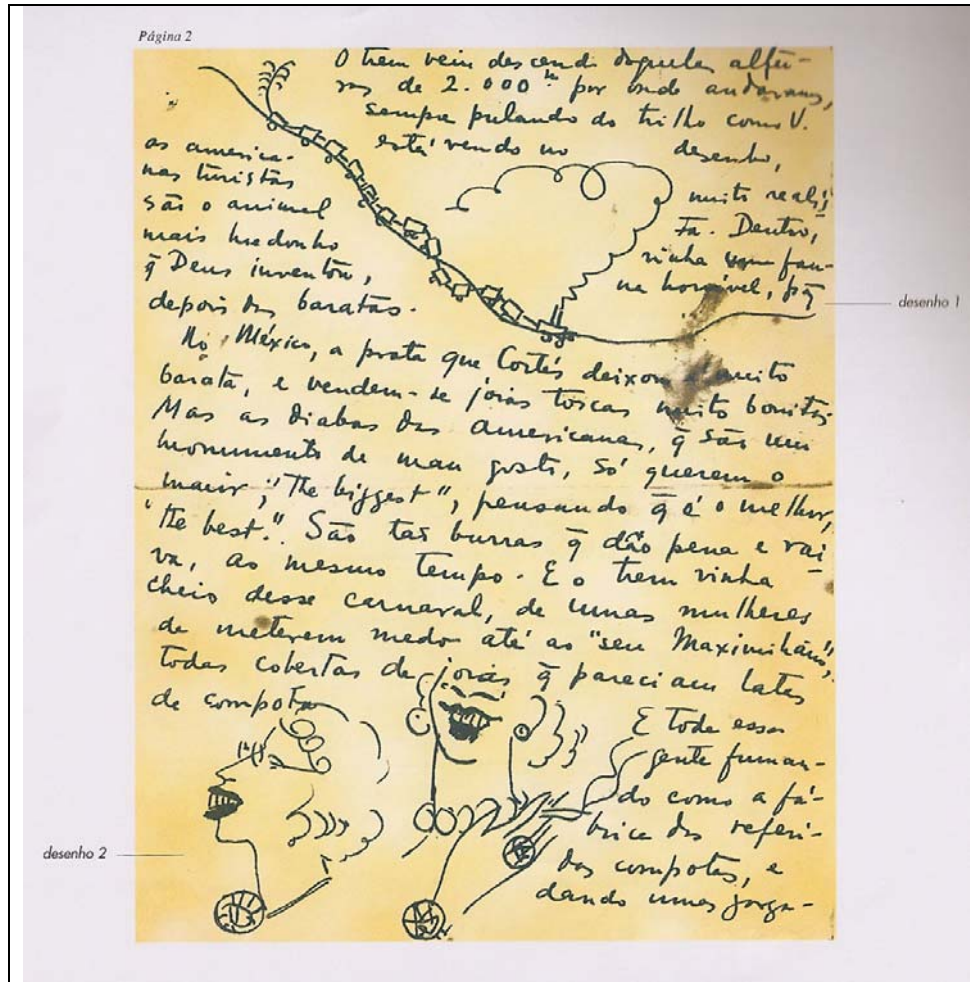 Página 2
O trem vein descendo daquelas altu-
ras de 2.000 m por onde andavamos,
sempre pulando do trilho como V.
está vendo no desenho,
muito realis
ta. Dentro,
vinha uma fau-
na horrível, pq̄
as america-
nas turistas
são o animal
mais medonho
q̄ Deus inventou,
depois das baratas.
desenho 1
No México, a prata que Cortés deixou é muito
barata, e vendem-se joias toscas muito bonitas.
Mas as diabas das americanas, q̄ são um
monumento de mau gosto, só querem o
maior, "the biggest", pensando q̄ é o melhor,
"the best". São tão burras q̄ dão pena e rai-
va, ao mesmo tempo. E o trem vinha
cheio desse carnaval, de umas mulheres
de meterem medo até ao "seu Maximiliano",
todas cobertas de joias q̄ pareciam latas
de compota
E toda essa
gente fuman-
do como a fá-
brica das referi-
das compotas, e
dando umas garga-
desenho 2